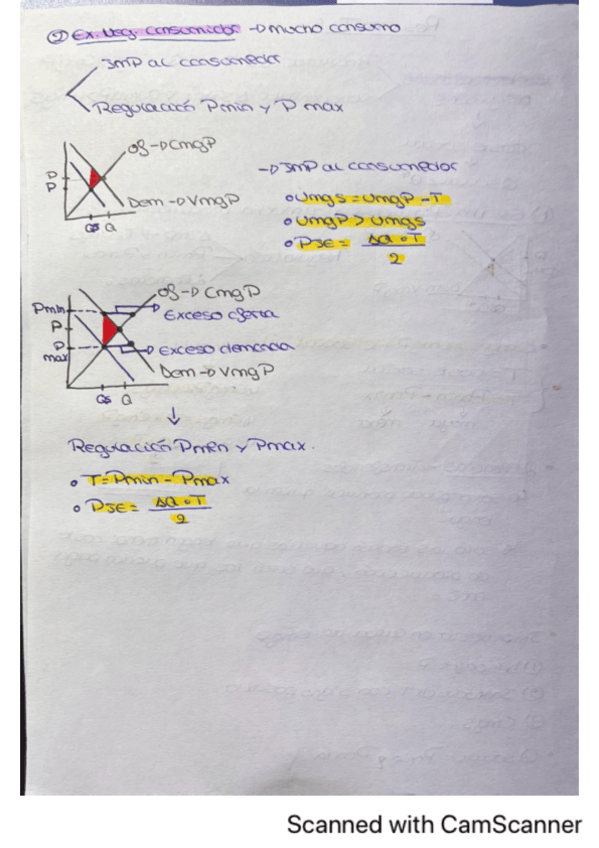 ② Ex. Neg. consumidor → mucho consumo
Imp al consumidor
Regulación Pmin y Pmax
Of → CmgP
P
P
Dem → VmgP
Qs Q
→ Imp al consumidor
• UmgS = UmgP - T
• UmgP > UmgS
• PIE = ΔQ • T
2
Of → CmgP
Pmin
Exceso oferta
P
P
max
Exceso demanda
Dem → VmgP
Qs Q
Regulación Pmin y Pmax.
• T = Pmin - Pmax
• PIE = ΔQ • T
2
Scanned with CamScanner